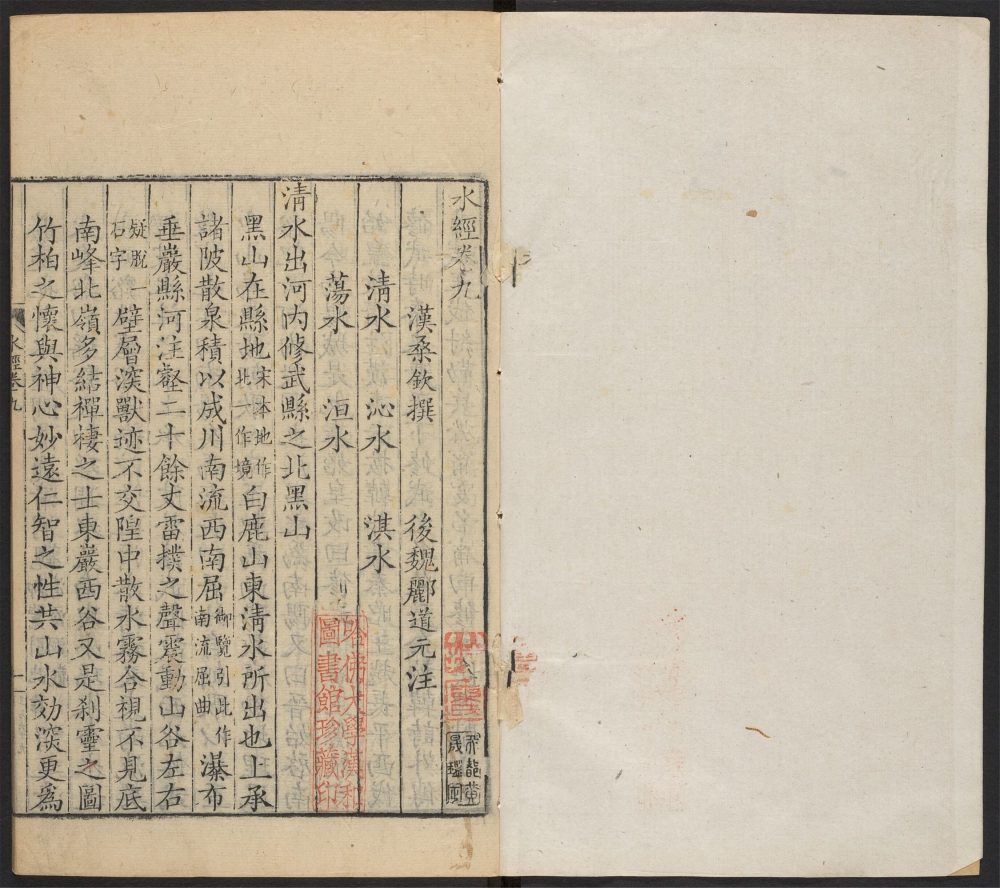 水經卷九
漢桑欽撰 後魏酈道元注
清水 沁水 淇水
蕩水 洹水
清水出河内修武縣之北黑山
黑山在縣地宋本地作北作境白鹿山東清水所出也上承
諸陂散泉積以成川南流西南屈御覽引此作南流屈曲瀑布
垂巖縣河注壑二十餘丈雷撲之聲震動山谷左右
疑脫一石字壁層深獸迹不交隍中散水霧合視不見底
南峰北嶺多結禪棲之士東巖西谷又是刹靈之圖
竹柏之懷與神心妙遠仁智之性共山水効深更爲
水經卷九
一
哈佛大學漢和
圖書館珍藏印